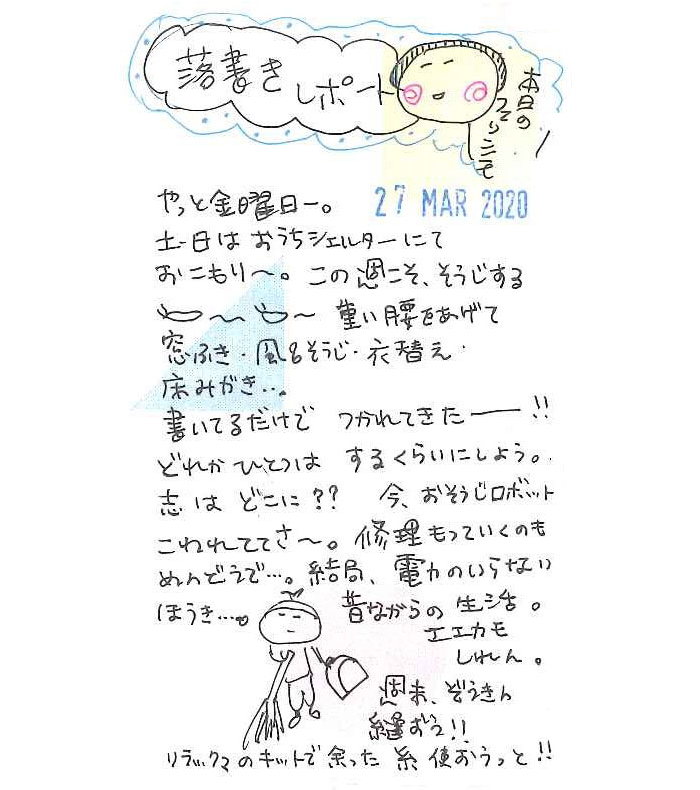 落書きレポート
本日の
こそ
やっと金曜日ー。
27 MAR 2020
土日は おうちシェルターにて
おこもり〜。この週こそ、そうじする
重い腰をあげて
窓ふき・風呂そうじ・衣替え・
床みがき…。
書いてるだけで つかれてきたー!!
どれかひとつは するくらいにしよう。
志は どこに?? 今、おそうじロボット
こわれててさ〜。修理もっていくのも
めんどうで…。結局、電力のいらない
ほうき…。昔ながらの生活。
エエカモ
しれん。
週末、ぞうきん
縫おう!!
リラックマのキットで余った糸使おうっと!!